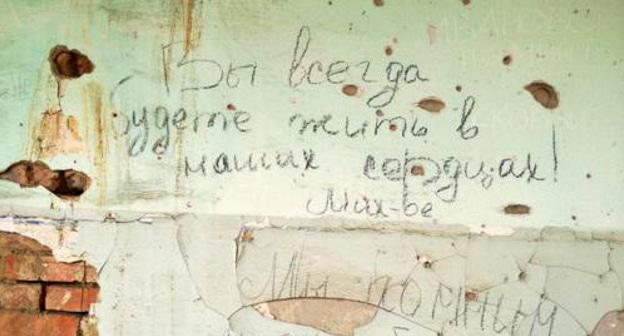 Вы всегда
будете жить в
наших сердцах!
Мах-ве
Мы помним